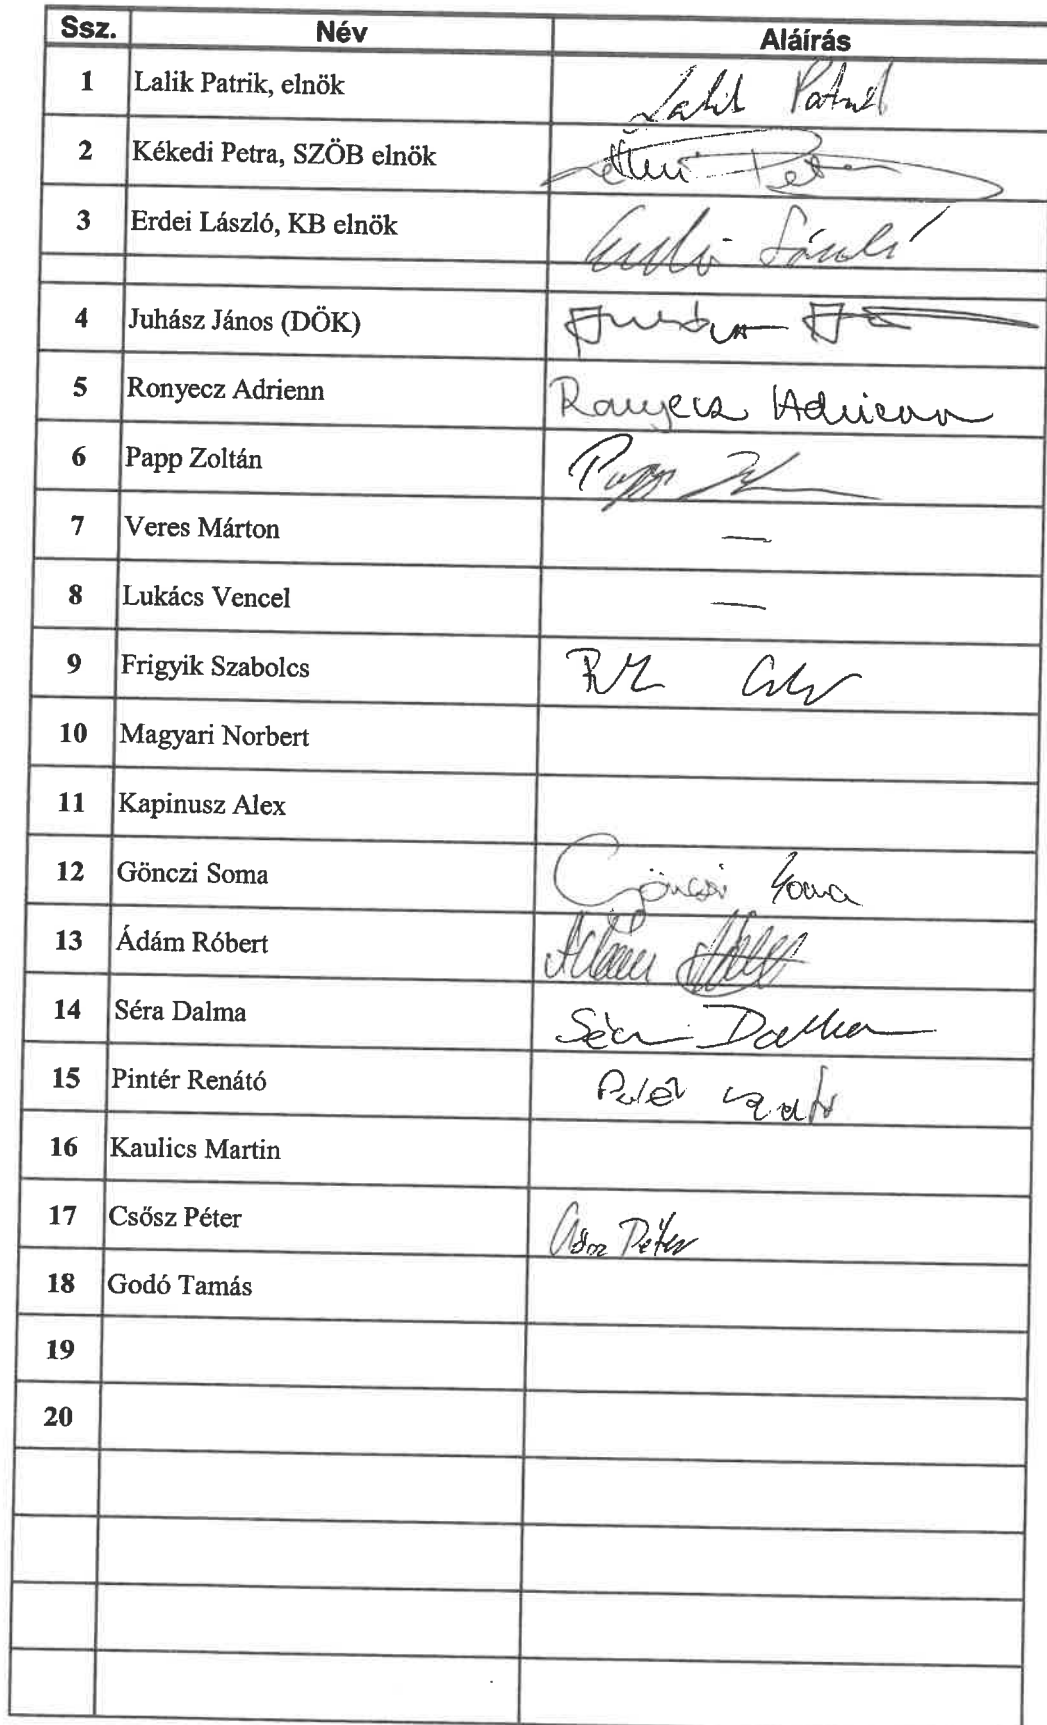 Ssz. Név Aláírás
1 Lalik Patrik, elnök Lalik Patrik
2 Kékedi Petra, SZÖB elnök
3 Erdei László, KB elnök
4 Juhász János (DÖK)
5 Ronyecz Adrienn Ronyecz Adrienn
6 Papp Zoltán Papp
7 Veres Márton —
8 Lukács Vencel —
9 Frigyik Szabolcs
10 Magyari Norbert
11 Kapinusz Alex
12 Gönczi Soma Gönczi Soma
13 Ádám Róbert Ádám
14 Séra Dalma Séra Dalma
15 Pintér Renátó
16 Kaulics Martin
17 Csősz Péter Csősz Péter
18 Godó Tamás
19
20